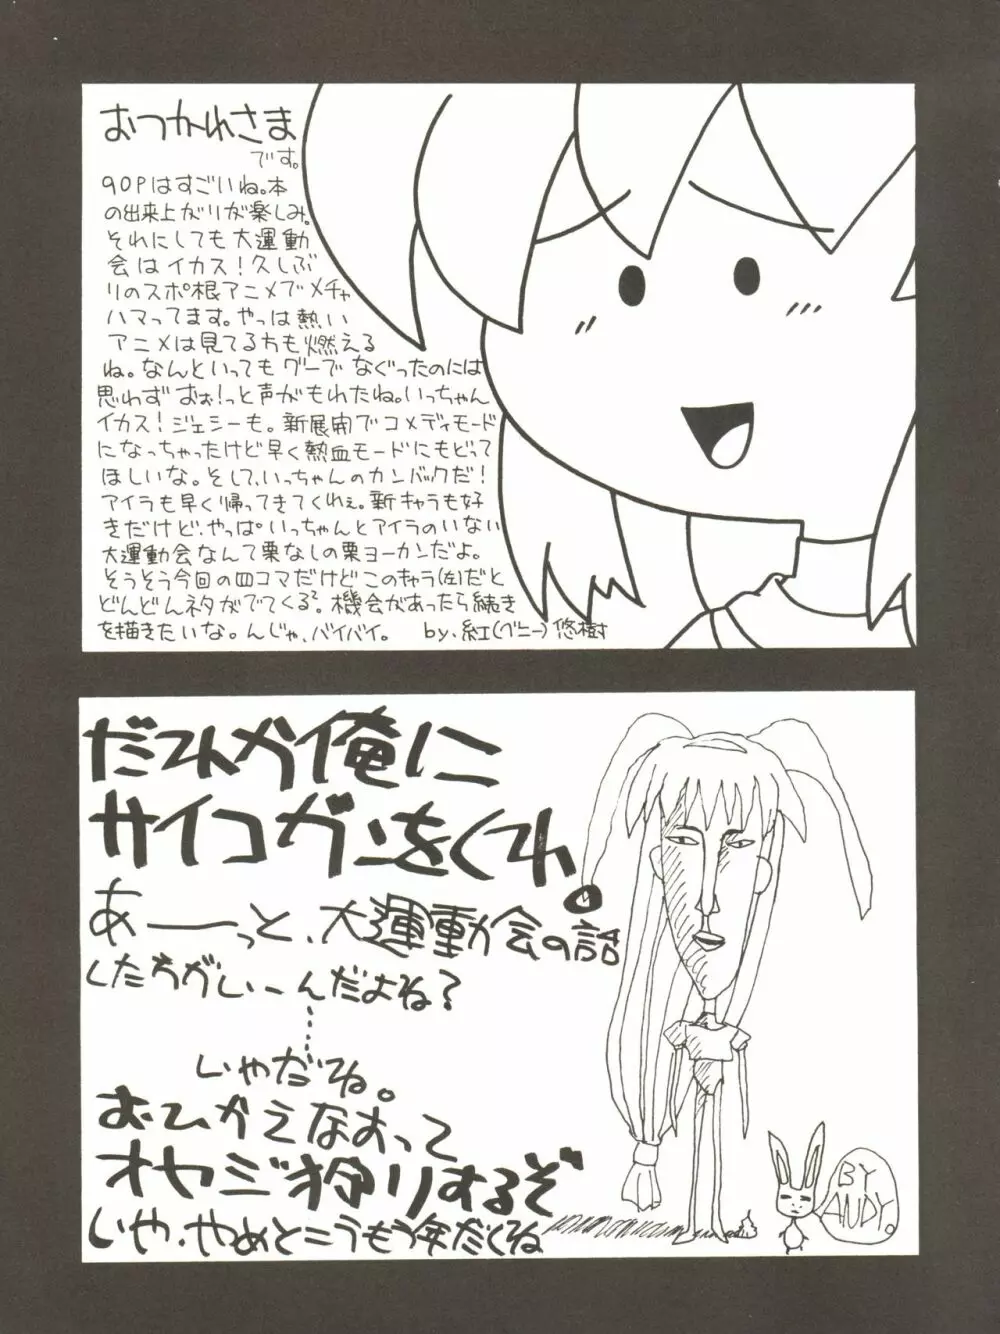 おつかれさま
です。
90Pはすごいね。本
の出来上がりが楽しみ。
それにしても大運動
会はイカス!久しぶ
りのスポ根アニメでメチャ
ハマってます。やっぱ熱い
アニメは見てる方も燃える
ね。なんといってもグーでなぐったのには
思わずおぉ!っと声がもれたね。いっちゃん
イカス!ジェシーも。新展開でコメディモード
になっちゃったけど早く熱血モードにもどって
ほしいな。そして、いっちゃんのカンバックだ!
アイラも早く帰ってきてくれぇ。新キャラも好
きだけど、やっぱいっちゃんとアイラのいない
大運動会なんて栗なしの栗ヨーカンだよ。
そうそう今回の四コマだけどこのキャラ(左)だと
どんどんネタがでてくる²。機会があったら続き
を描きたいな。んじゃ、バイバイ。 by.紅(ベニー)悠樹
だれか俺に
サイコガンをくれ。
あーーっと、大運動会の話
したろがいーんだよね?
……
いやだね。
おひかえなすって
オヤジ狩りするぞ
いや、やめとこうもう年だくね
BY
ANDY.